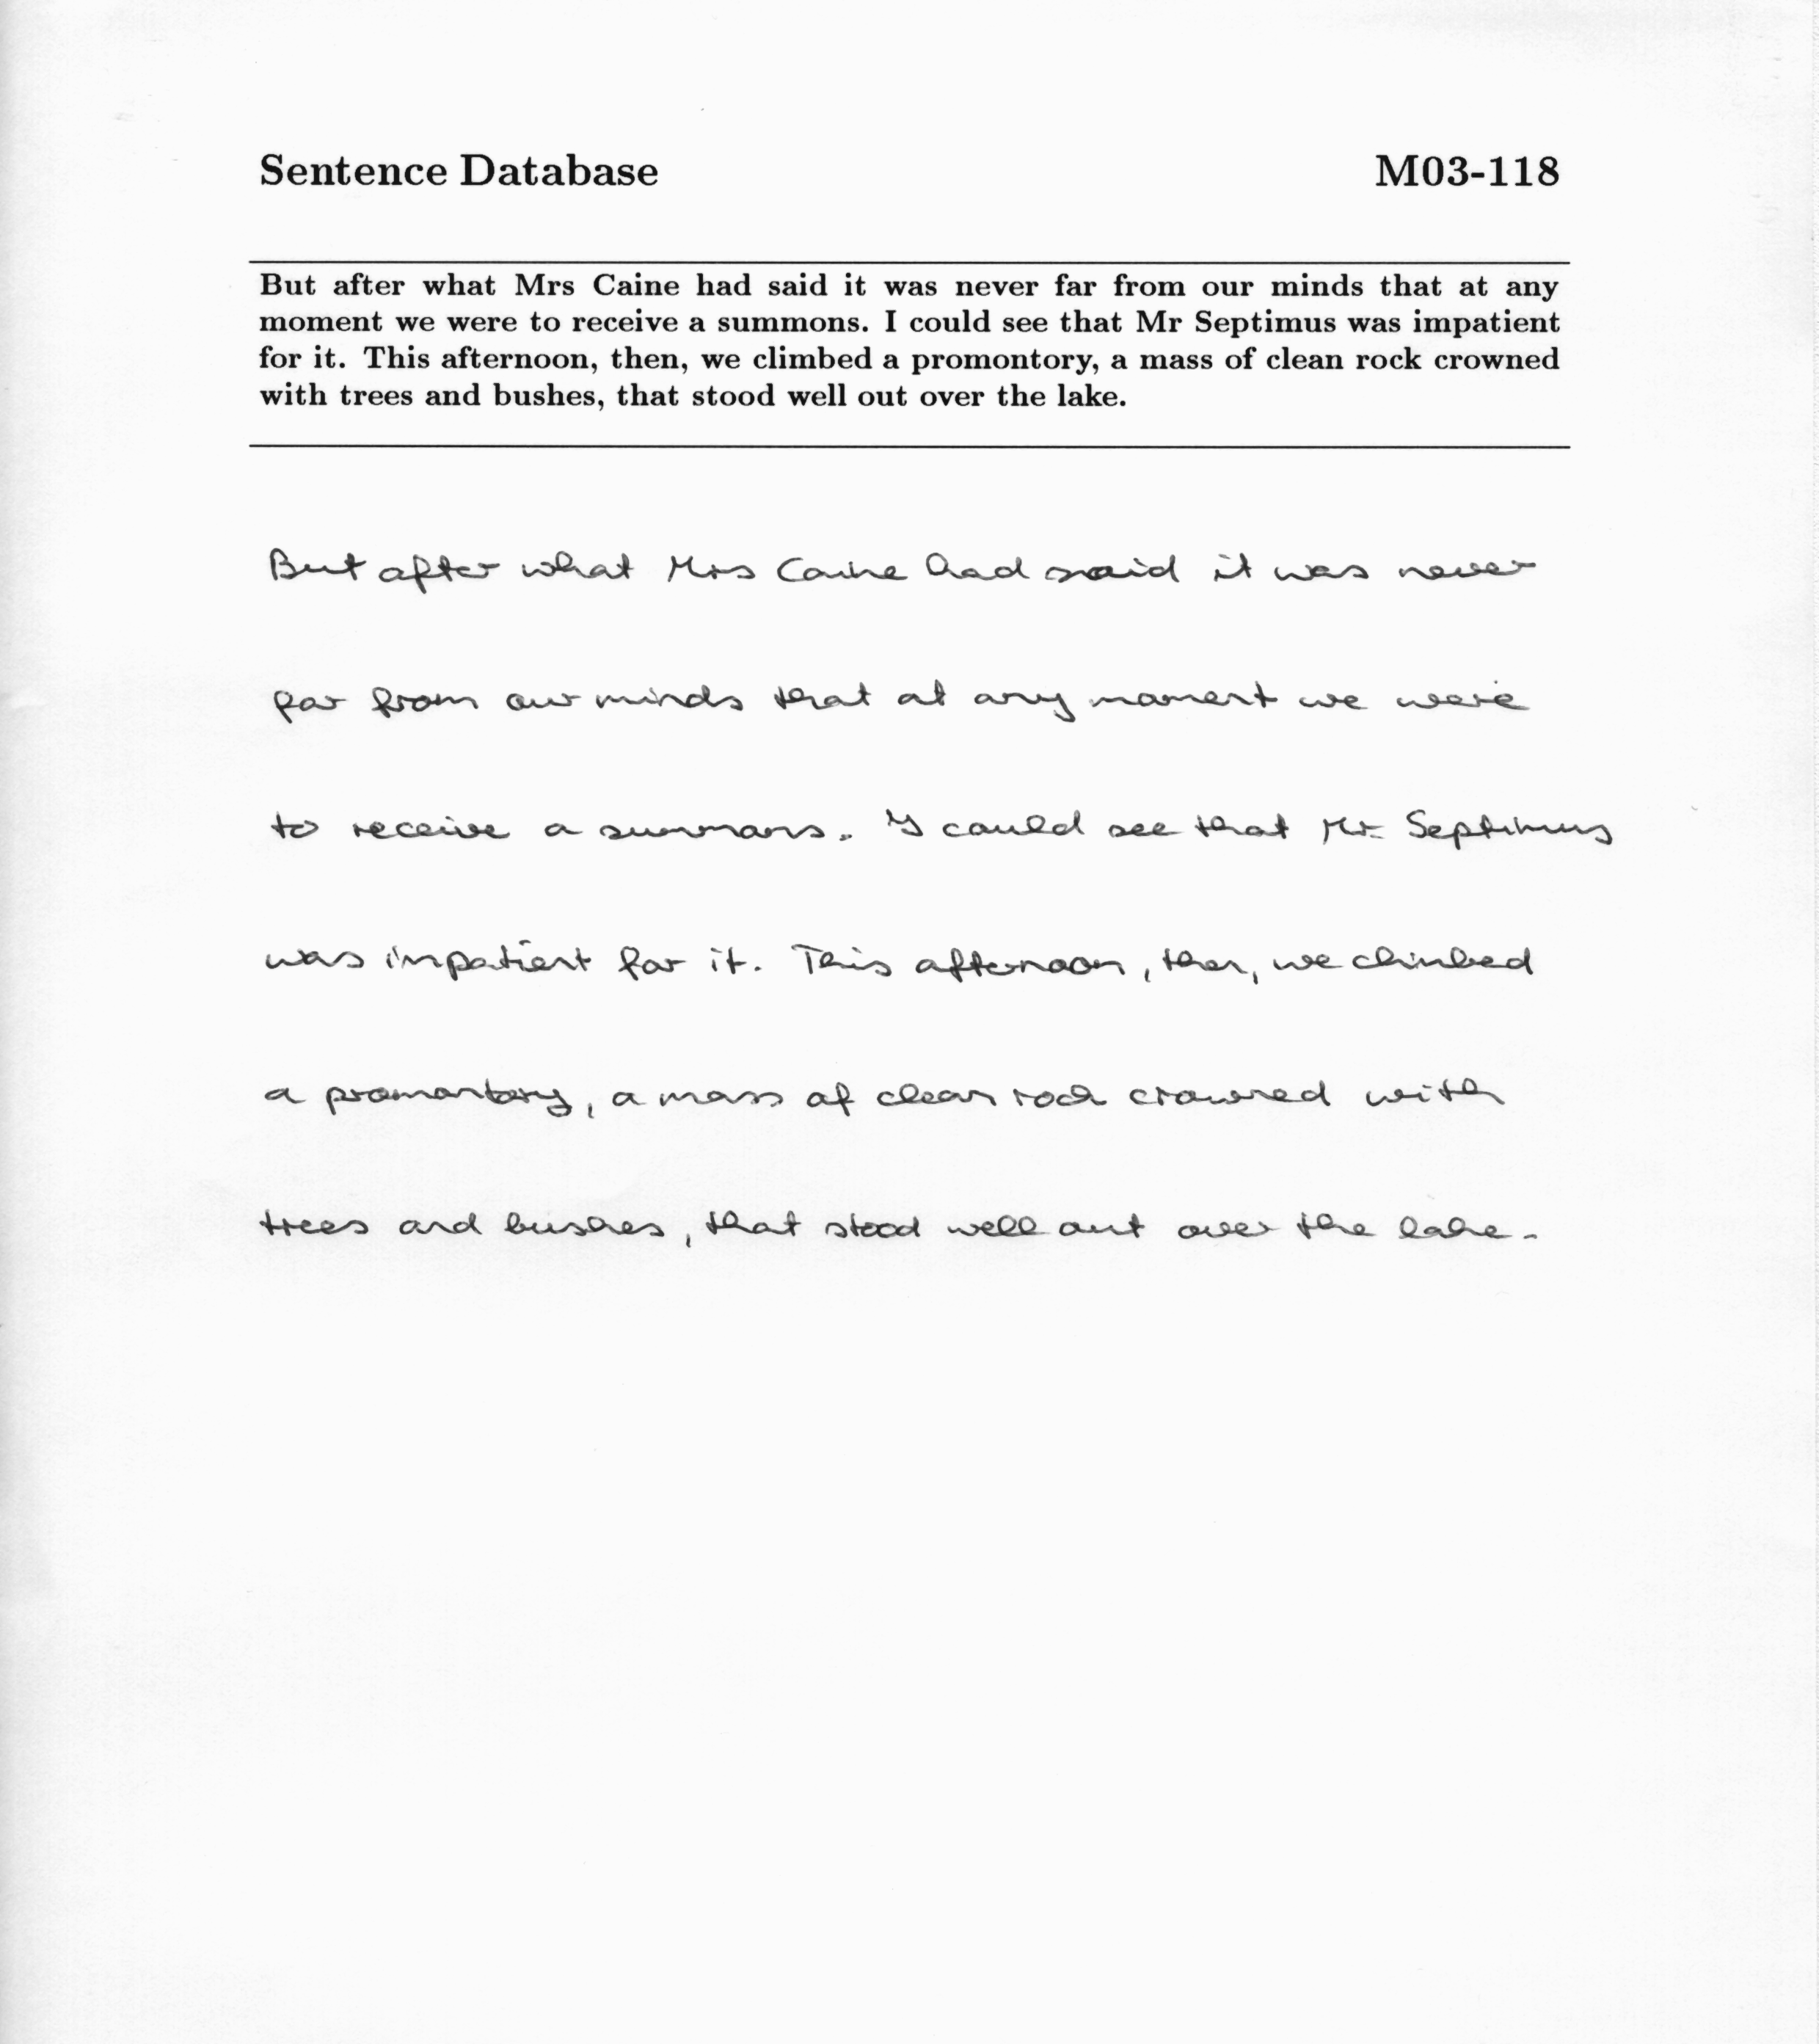 Sentence Database M03-118
But after what Mrs Caine had said it was never far from our minds that at any
moment we were to receive a summons. I could see that Mr Septimus was impatient
for it. This afternoon, then, we climbed a promontory, a mass of clean rock crowned
with trees and bushes, that stood well out over the lake.
But after what Mrs Caine had said it was never
far from our minds that at any moment we were
to receive a summons. I could see that Mr Septimus
was impatient for it. This afternoon, then, we climbed
a promontory, a mass of clean rock crowned with
trees and bushes, that stood well out over the lake.